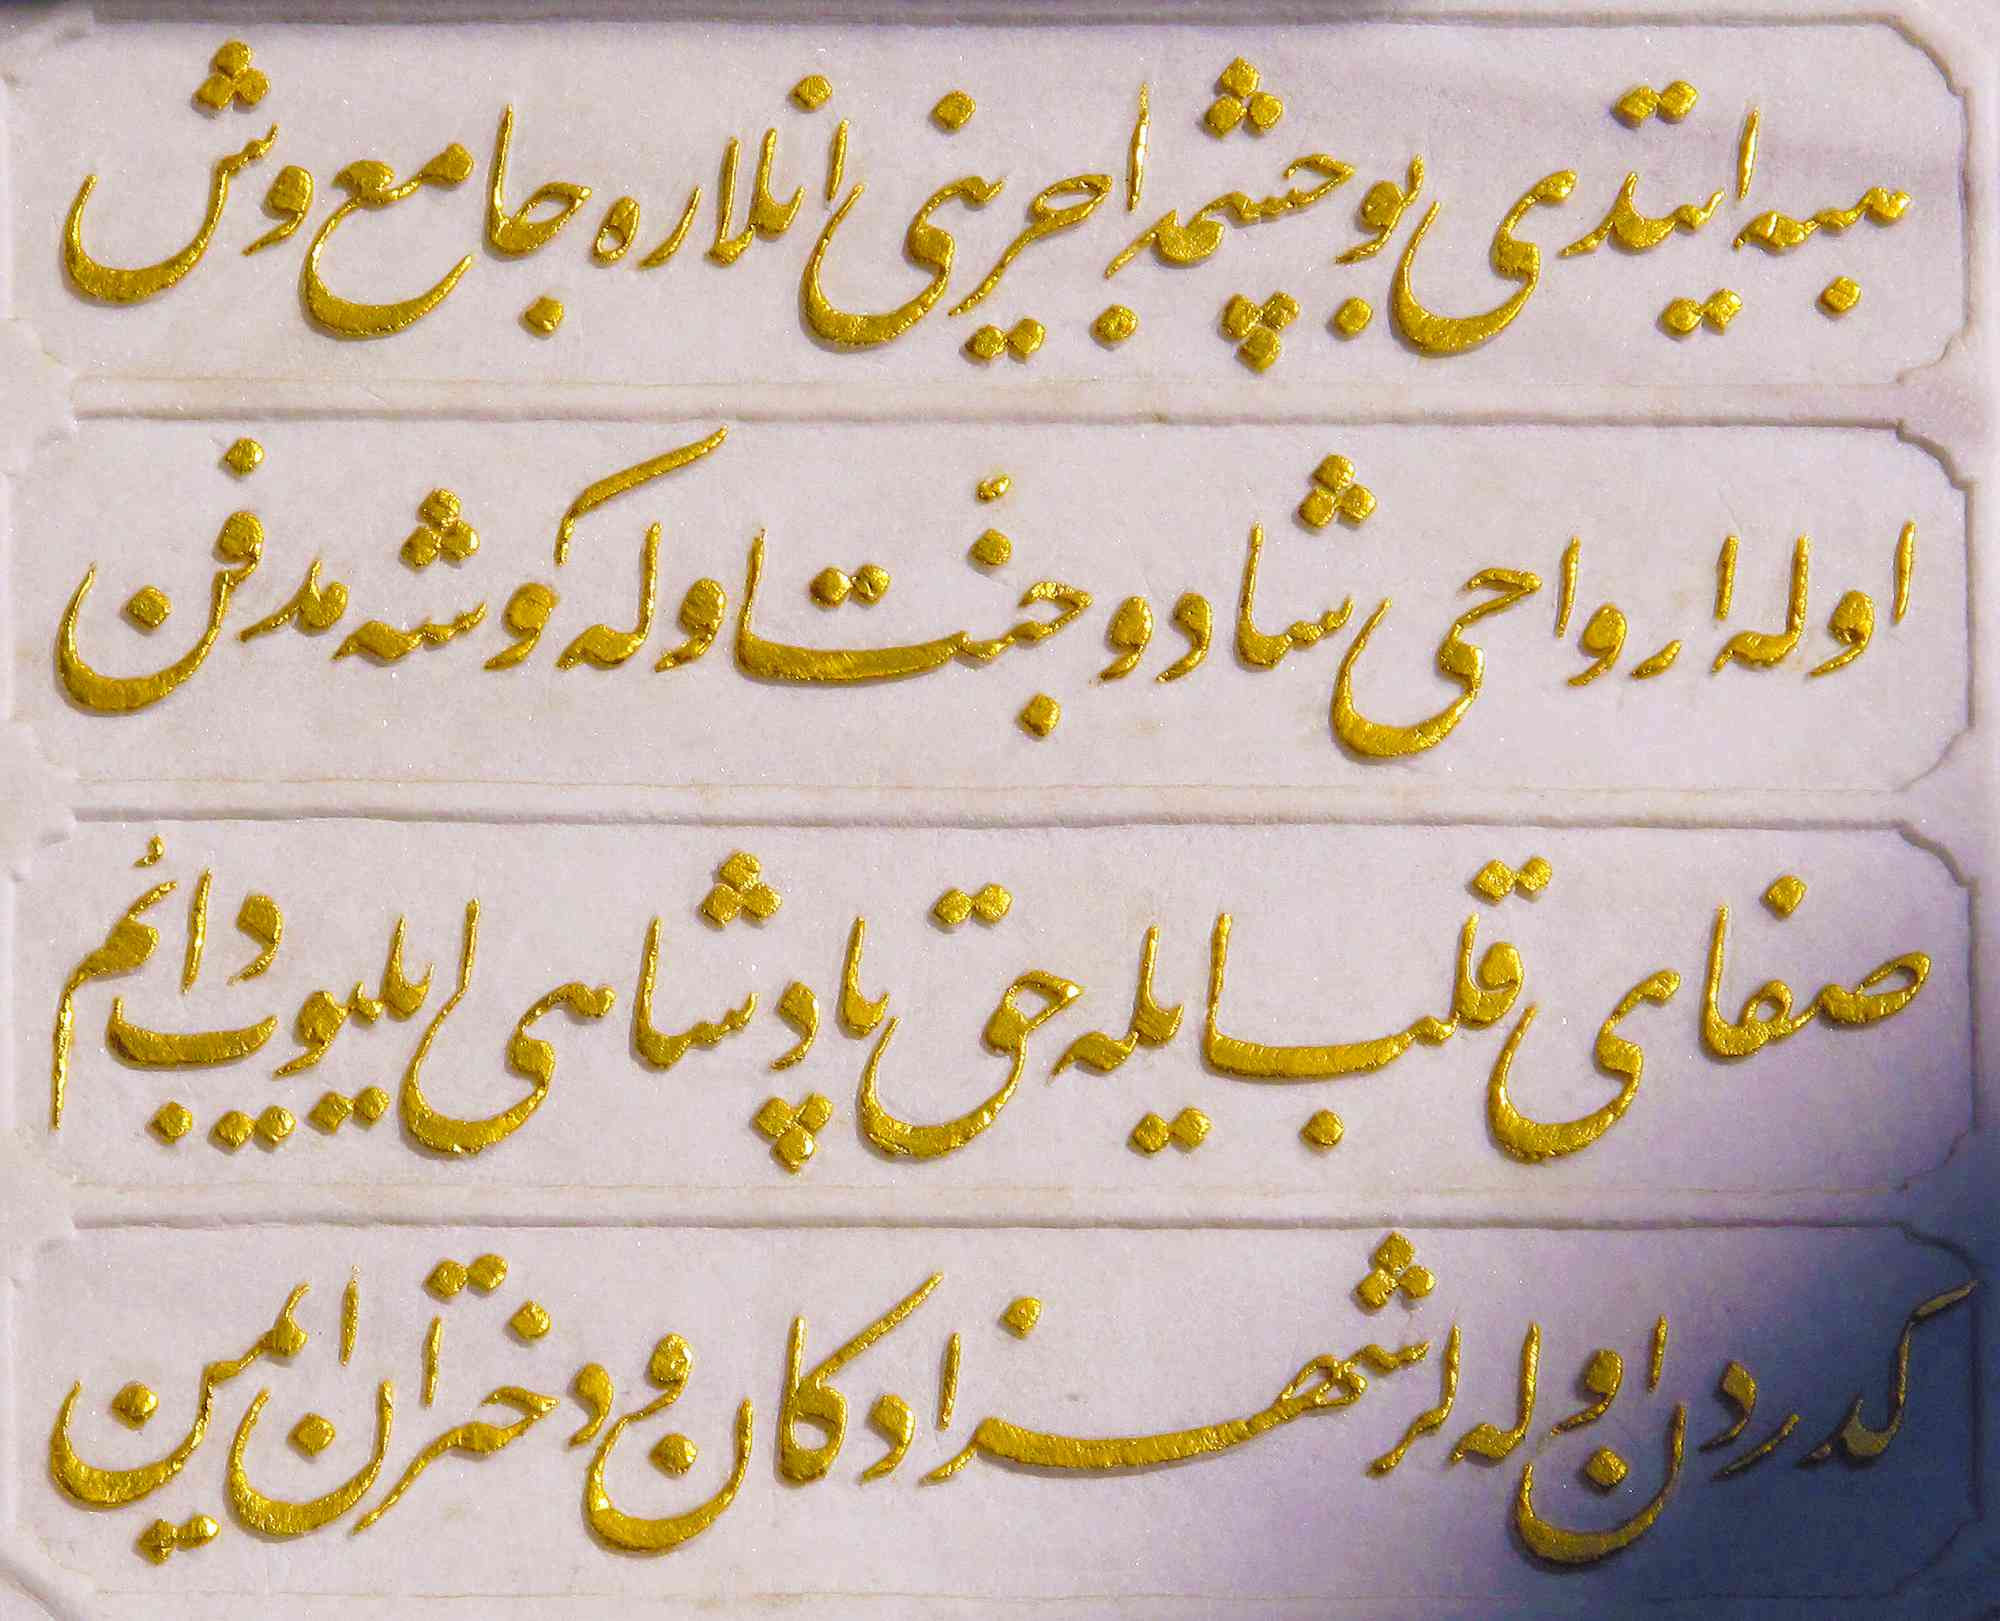 هبه ایتدی بو چشمه اجرینی انلاره جامع وش
اوله ارواحی شاد و جنّت اوله کوشه مدفن
صفای قلب ایله حق پادشاهی ایلیوب دائم
کدردن اوله لر شهزادکان و دختران ایمن